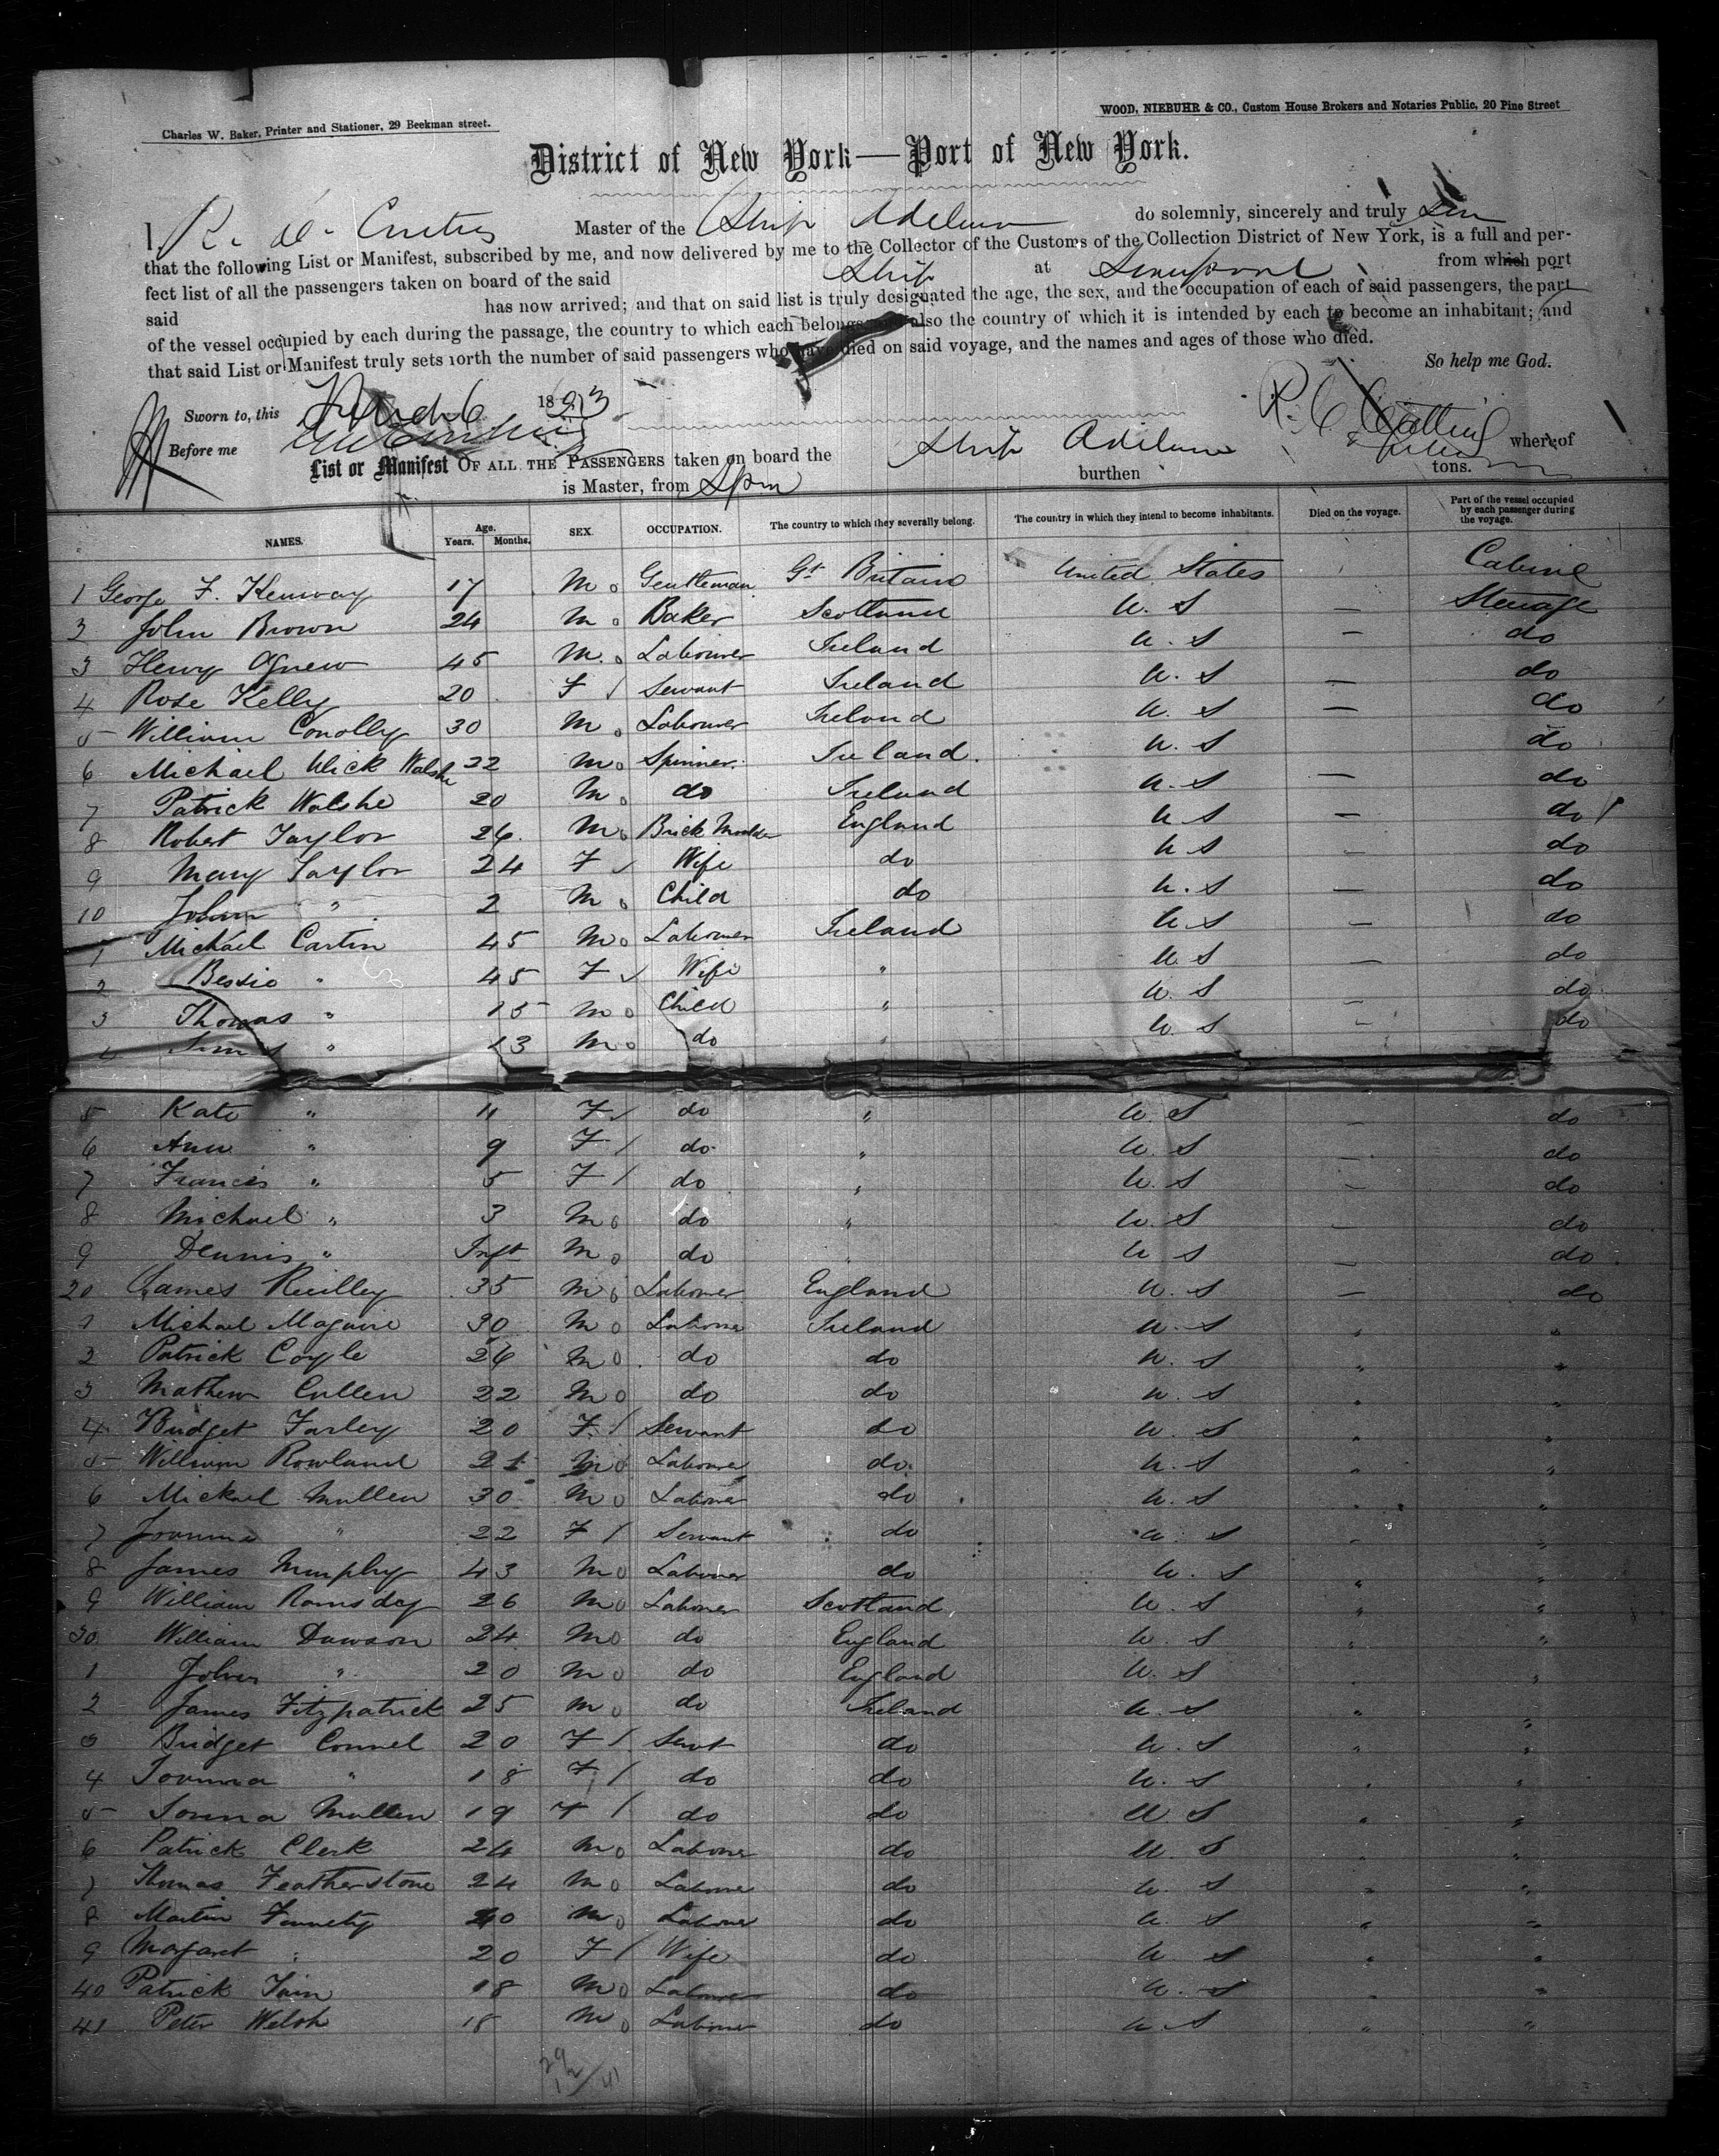 Charles W. Baker, Printer and Stationer, 29 Beekman street.
WOOD, NIEBUHR & CO., Custom House Brokers and Notaries Public, 20 Pine Street
District of New York—Port of New York.
I, Master of the Ship do solemnly, sincerely and truly
that the following List or Manifest, subscribed by me, and now delivered by me to the Collector of the Customs of the Collection District of New York, is a full and per-
fect list of all the passengers taken on board of the said Ship at from which port
said has now arrived; and that on said list is truly designated the age, the sex, and the occupation of each of said passengers, the part
of the vessel occupied by each during the passage, the country to which each belongs also the country of which it is intended by each to become an inhabitant; and
that said List or Manifest truly sets forth the number of said passengers who have died on said voyage, and the names and ages of those who died.
So help me God.
Sworn to, this 18
Before me
List or Manifest OF ALL THE PASSENGERS taken on board the Ship whereof
is Master, from burthen tons.
NAMES. Age. Years. Months. SEX. OCCUPATION. The country to which they severally belong. The country in which they intend to become inhabitants. Died on the voyage. Part of the vessel occupied by each passenger during the voyage.
1 George F. Kenway 17 M Gentleman Gt Britain United States Cabine
2 John Brown 24 M Baker Scotland U. S — Steerage
3 Henry Agnew 45 M. Labourer Ireland U. S — do
4 Rose Kelly 20 F Servant Ireland U. S — do
5 William Conolly 30 M Labourer Ireland U. S — do
6 Michael Ulick Walshe 22 M Spinner Ireland. U. S do
7 Patrick Walshe 20 M do Ireland U. S — do
8 Robert Taylor 26 M Brick Moulder England U S — do
9 Mary Taylor 24 F Wife do U S — do
10 John " 2 M Child do U. S — do
1 Michael Cartin 45 M Labourer Ireland U. S — do
2 Bessie " 45 F Wife " U. S — do
3 Thomas " 15 M Child " U. S — do
4 " 13 M do " U. S — do
5 Kate " 11 F do " U. S — do
6 Ann " 9 F do " U. S — do
7 Francis " 5 F do " U. S — do
8 Michael " 3 M do " U. S — do
9 Dennis " Inft M do " U S — do
20 James Reilley 35 M Labourer England U. S — do
1 Michael Maguire 30 M Labourer Ireland U. S " "
2 Patrick Coyle 26 M do do U. S " "
3 Mathew Cullen 22 M do do U. S " "
4 Bridget Farley 20 F Servant do U. S " "
5 William Rowland 21 M Labourer do U. S " "
6 Michael Mullen 30 M Labourer do U. S " "
7 " 22 F Servant do U. S " "
8 James Murphy 43 M Labourer do U. S " "
9 William Ramsdey 26 M Labourer Scotland U. S " "
30 William Dawson 24 M do England U. S " "
1 John " 20 M do England U. S "
2 James Fitzpatrick 25 M do Ireland U. S " "
3 Bridget Connel 20 F Servt do U. S " "
4 " 18 F do do U. S " "
5 Mullen 19 F do do U. S " "
6 Patrick Clerk 24 M Labourer do U. S " "
7 Thomas Featherstone 24 M Labourer do U. S " "
8 Martin 20 M Labourer do U. S " "
9 Margaret " 20 F Wife do U. S " "
40 Patrick 18 M Labourer do U. S " "
41 Peter Welsh 18 M Labourer do U. S " "
29
12/41